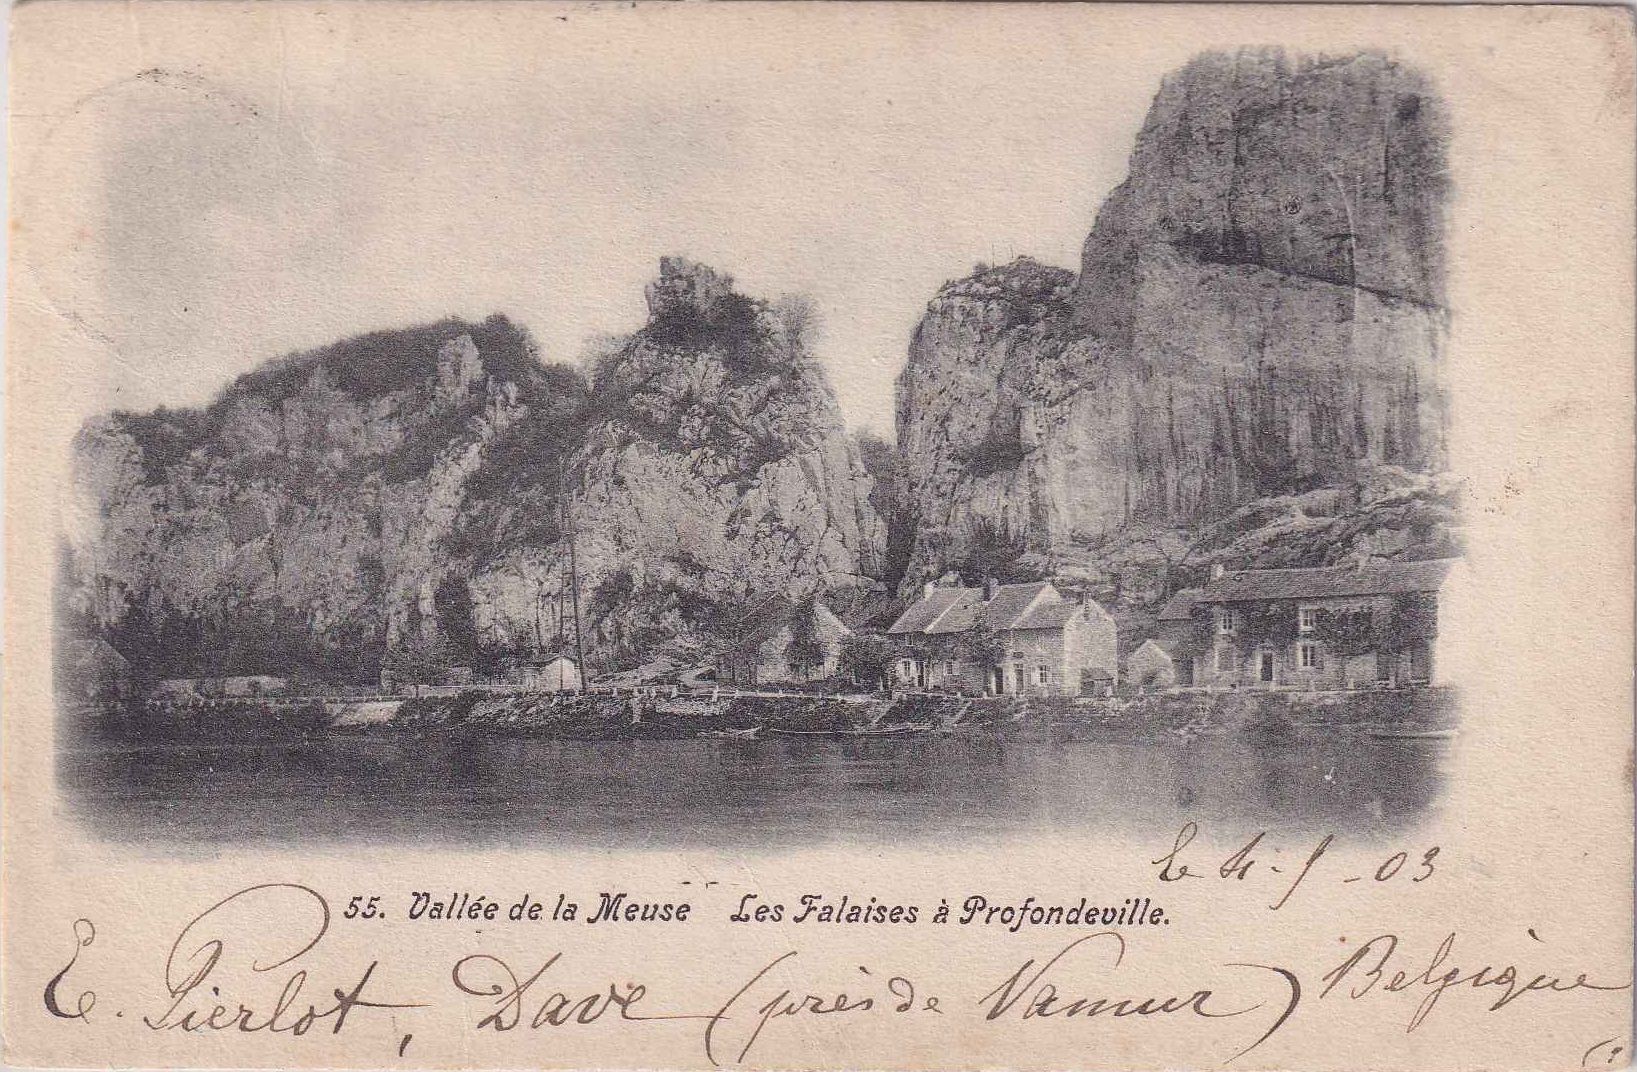 Le 4-5-03
55. Vallée de la Meuse Les Falaises à Profondeville.
E. Pierlot, Dave (près de Namur) Belgique